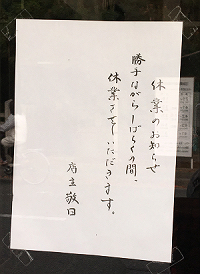 休業のお知らせ
勝手ながらしばらくの間、
休業させていただきます。
店主敬白